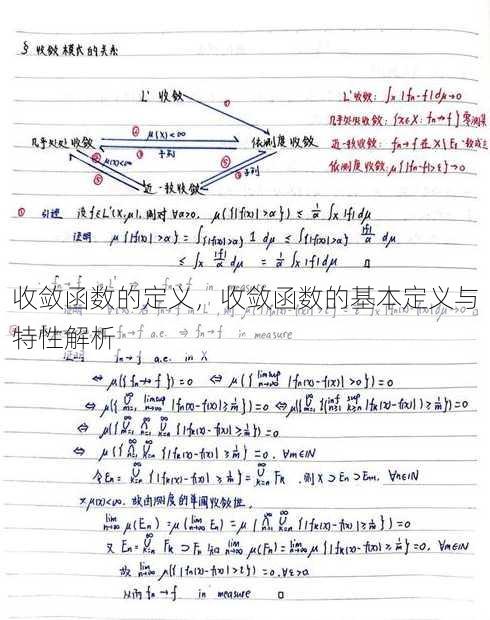 § 收敛模式的关系
L¹ 收敛
几乎处处收敛
μ(X)<∞
子列
依测度收敛
μ(X)<∞
子列
近一致收敛
L¹收敛: ∫x |fn-f|dμ→0
几乎处处收敛: {x∈X: fn↛f} 零测集
近一致收敛: fn→f 在 X\Eε 一致成立
依测度收敛: μ{|fn-f|>ε}→0
① 引理 设 f∈L¹(X,μ), 则对 ∀α>0, μ({|f(x)|>α}) ≤ 1/α ∫x |f|dμ
证明 μ{|f(x)|>α} = ∫{|f(x)|>α} 1 dμ ≤ ∫{|f(x)|>α} |f|/α dμ
≤ ∫x |f|/α dμ = 1/α ∫x |f|dμ □
收敛函数的定义，收敛函数的基本定义与
特性解析
fn→f a.e. ⇒ fn→f in measure
证明 fn→f a.e. in X
⇔ μ({fn↛f})=0 ⇔ μ({limsup n→∞ |fn(x)-f(x)|>0})=0
⇔ μ(∪ m=1 ∞ {limsup n→∞ |fn(x)-f(x)|≥1/m})=0 ⇔ μ(∪ m=1 ∞ {inf n≥1 sup k≥n |fk(x)-f(x)|≥1/m})=0
⇔ μ(∪ m=1 ∞ ∩ n=1 ∞ ∪ k=n ∞ {|fk(x)-f(x)|≥1/m})=0
⇔ μ(∩ n=1 ∞ ∪ k=n ∞ {|fk(x)-f(x)|≥1/m})=0, ∀m∈N
令En = ∪ k=n ∞ {|fk(x)-f(x)|≥1/m} = ∪ k=n ∞ Fk, 则 X⊃En⊃En+1, ∀n∈N
又μ(X)<∞, 故由测度的单调收敛性,
lim n→∞ μ(En) = μ(lim n→∞ En) = μ(∩ n=1 ∞ ∪ k=n ∞ {|fk(x)-f(x)|≥1/m})=0
又 En = ∪ k=n ∞ Fk ⊃ Fn 知 lim n→∞ μ(Fn) = lim n→∞ μ{|fn(x)-f(x)|≥1/m}=0, ∀m∈N
故 lim n→∞ μ({|fn(x)-f(x)|>ε})=0, ∀ε>0
从而 fn→f in measure □